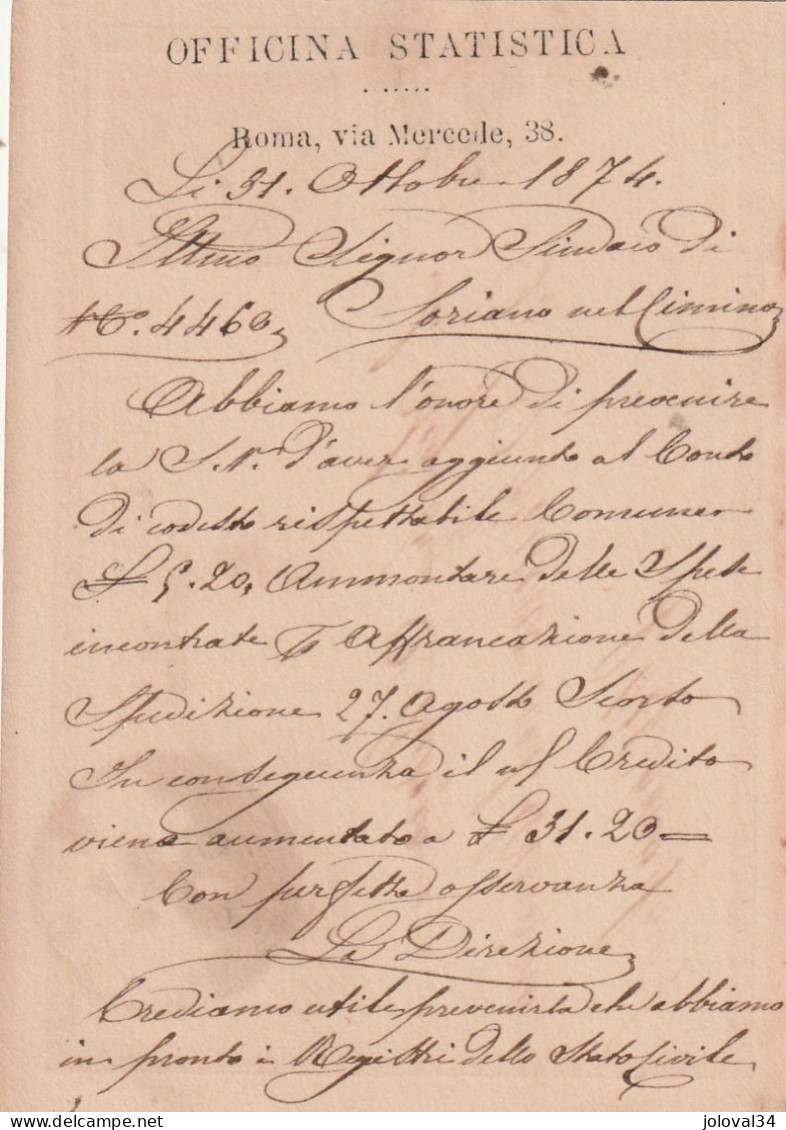 OFFICINA STATISTICA
Roma, via Mercede, 38.
Li 31. Ottobre 1874.
Illmo Signor Sindaco di
No. 4460, Soriano nel Cimino
Abbiamo l'onore di prevenire
la S. V. d'aver aggiunto al Conto
di codesto rispettabile Comune
£ 5.20, Ammontare delle Spese
incontrate Affrancazione della
Spedizione 27. Agosto Scorso
In conseguenza il Credito
viene aumentato a £ 31.20=
Con perfetta osservanza
La Direzione
Crediamo utile prevenirla che abbiamo
in pronto i Registri dello Stato Civile
joloval34